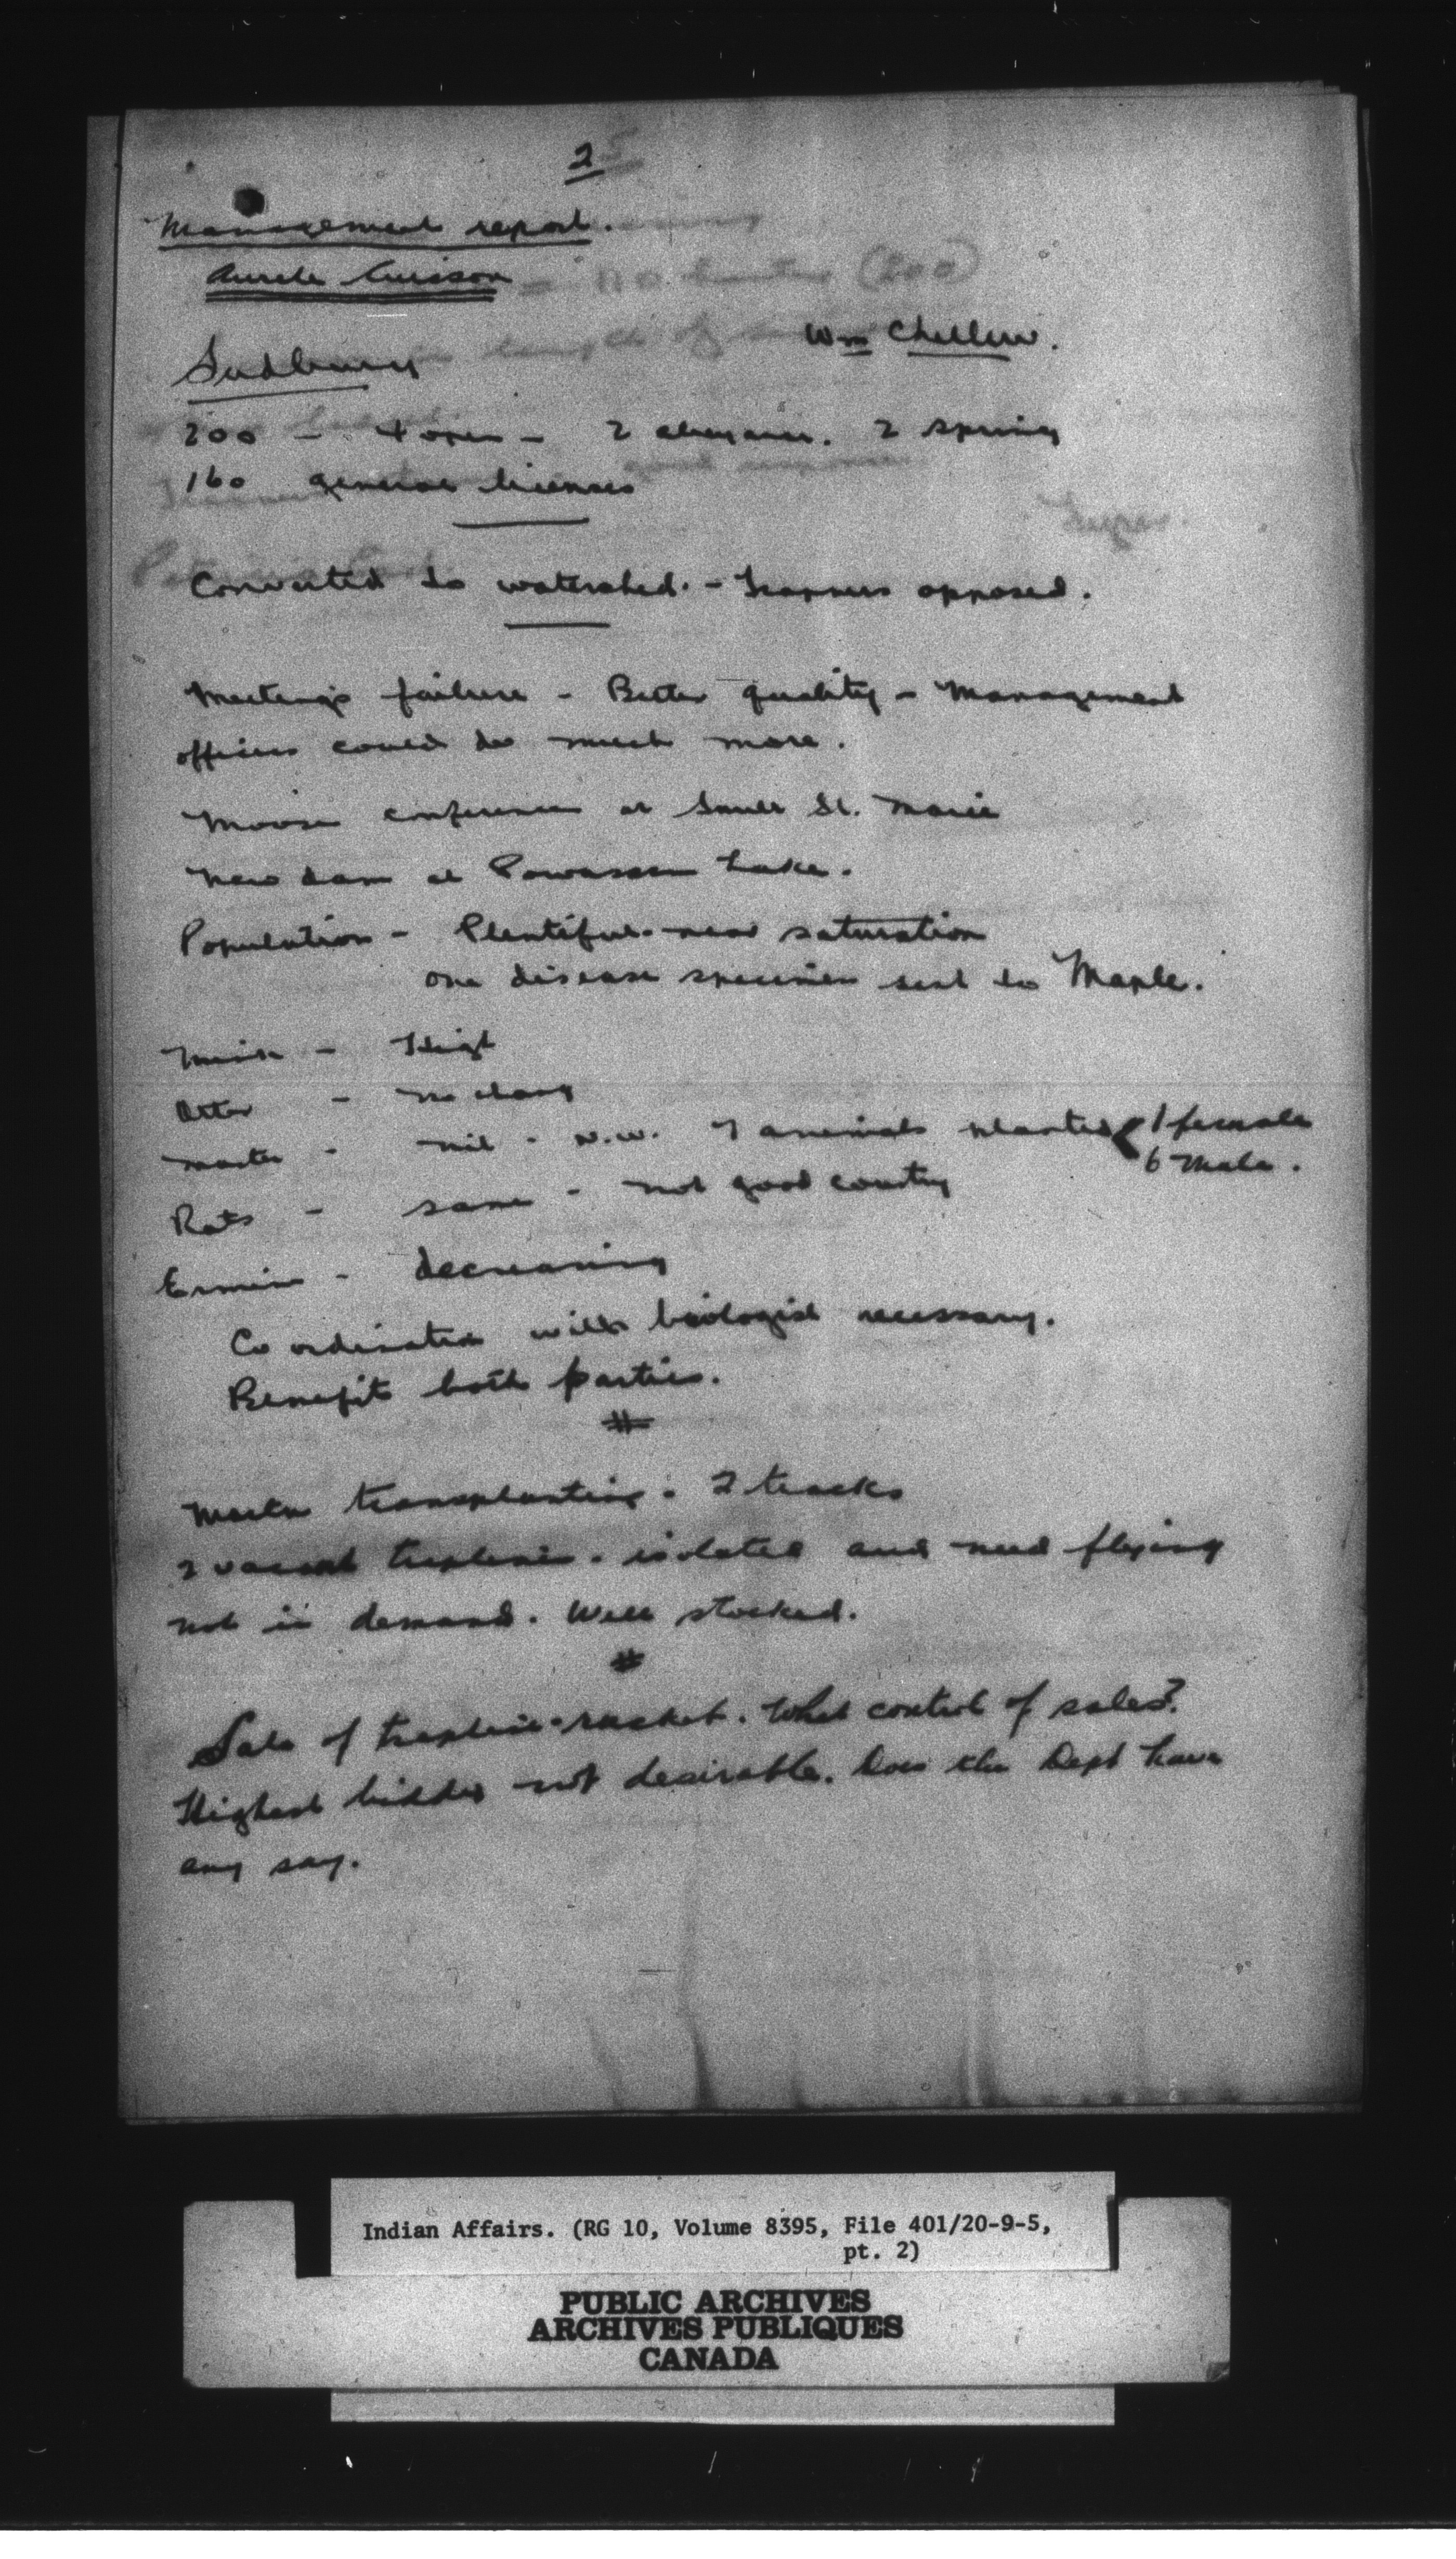 2
Management report.
Aurele
Sudbury
Wm Chellew.
200 - 4 open - 2 2 spring
160 general licenses
Converted to watershed. - Trappers opposed.
Meetings failure - Better quality - Management
officers could do much more.
Moose conference at Sault St. Marie
New dam at Lake.
Population - Plentiful - near saturation
one disease specimen sent to Maple.
Mink - High
Otter - no change
Marten - nil - N.W. 7 animals planted 1 female
6 Male.
Rats - same - not good country
Ermine - decreasing
Co ordination with biologist necessary.
Benefits both parties.
#
Marten transplanting. 2 tracks
2 vacant traplines. isolated and need flying
not in demand. Well stocked.
#
Sale of trapline - racket. What control of sales?
Highest bidder not desirable. Does the Dept have
any say.
Indian Affairs. (RG 10, Volume 8395, File 401/20-9-5,
pt. 2)
PUBLIC ARCHIVES
ARCHIVES PUBLIQUES
CANADA